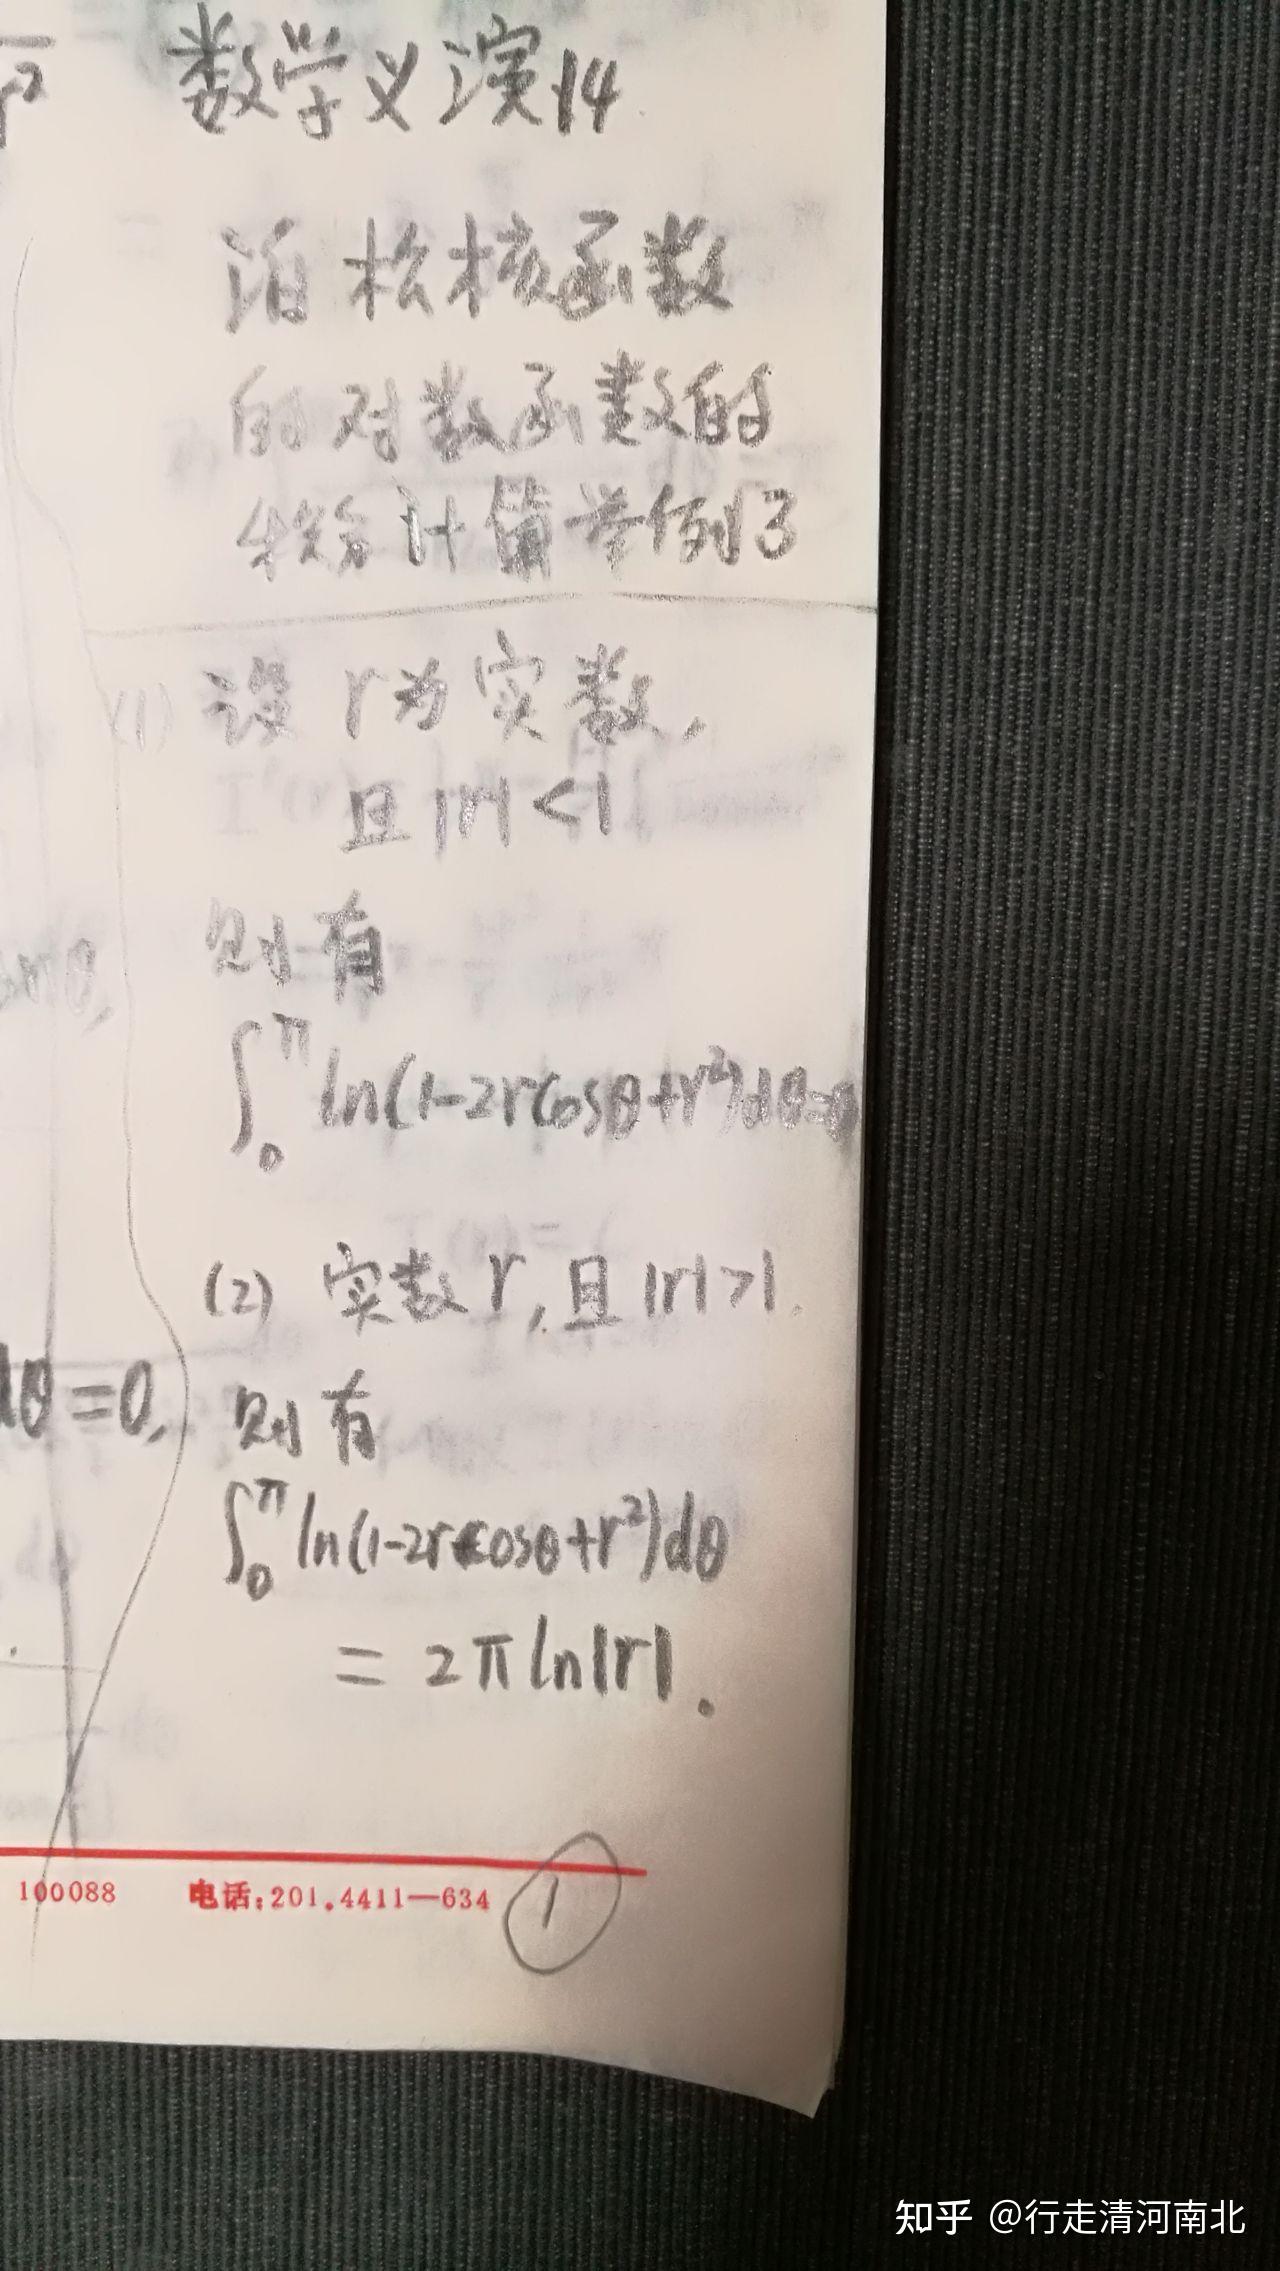 数学义演14
泊松核函数
的对数函数的
积分计算举例3
(1) 设 r为实数,
且 |r| < 1
则有
∫₀^π ln(1-2rcosθ+r²)dθ=0
(2) 实数 r, 且 |r|>1.
则有
∫₀^π ln(1-2rcosθ+r²)dθ
= 2π ln|r|.
dθ=0,
100088 电话:201.4411—634
1
知乎 @行走清河南北